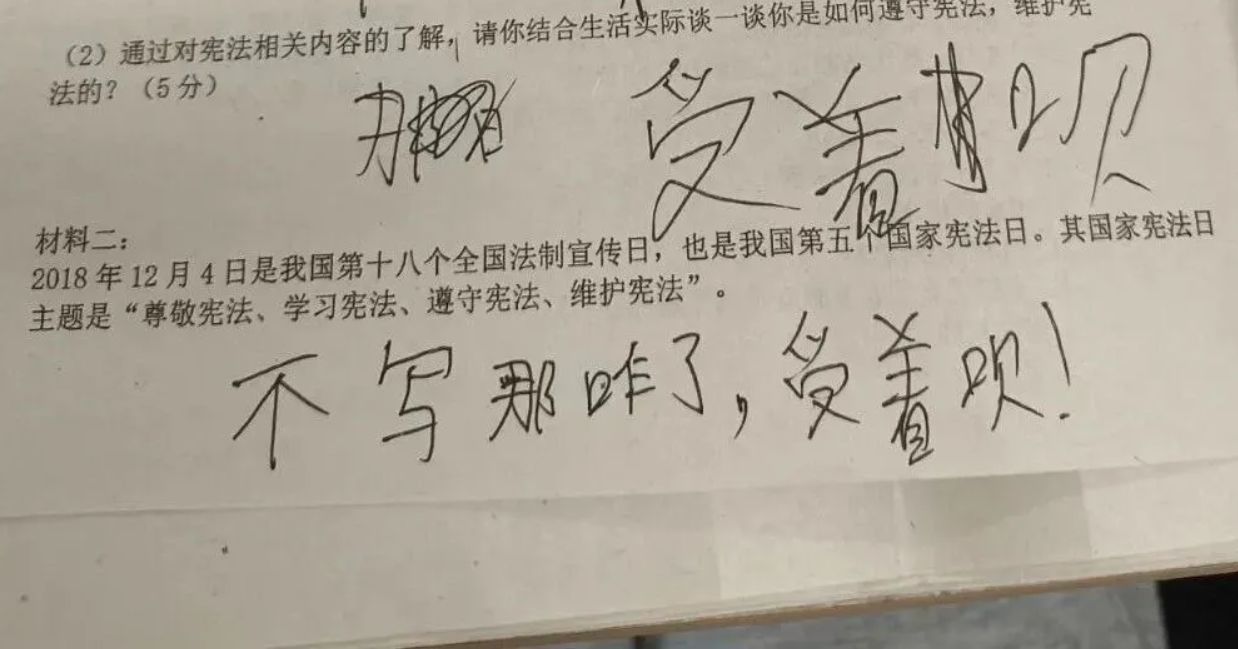 (2)通过对宪法相关内容的了解,请你结合生活实际谈一谈你是如何遵守宪法,维护宪
法的?(5分)
受着呗
材料二:
2018年12月4日是我国第十八个全国法制宣传日,也是我国第五个国家宪法日。其国家宪法日
主题是“尊敬宪法、学习宪法、遵守宪法、维护宪法”。
不写那咋了,受着呗!